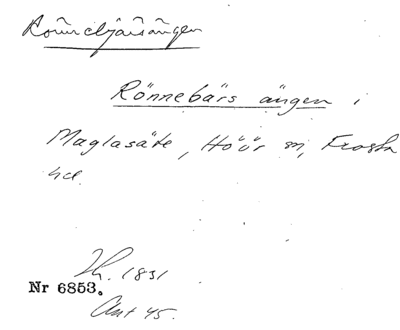 Rönnebärsängen
Rönnebärs ängen i
Maglasäte, Höör sn, Frosta
hd
Lh. 1831
Nr 6853.
Ant 45.